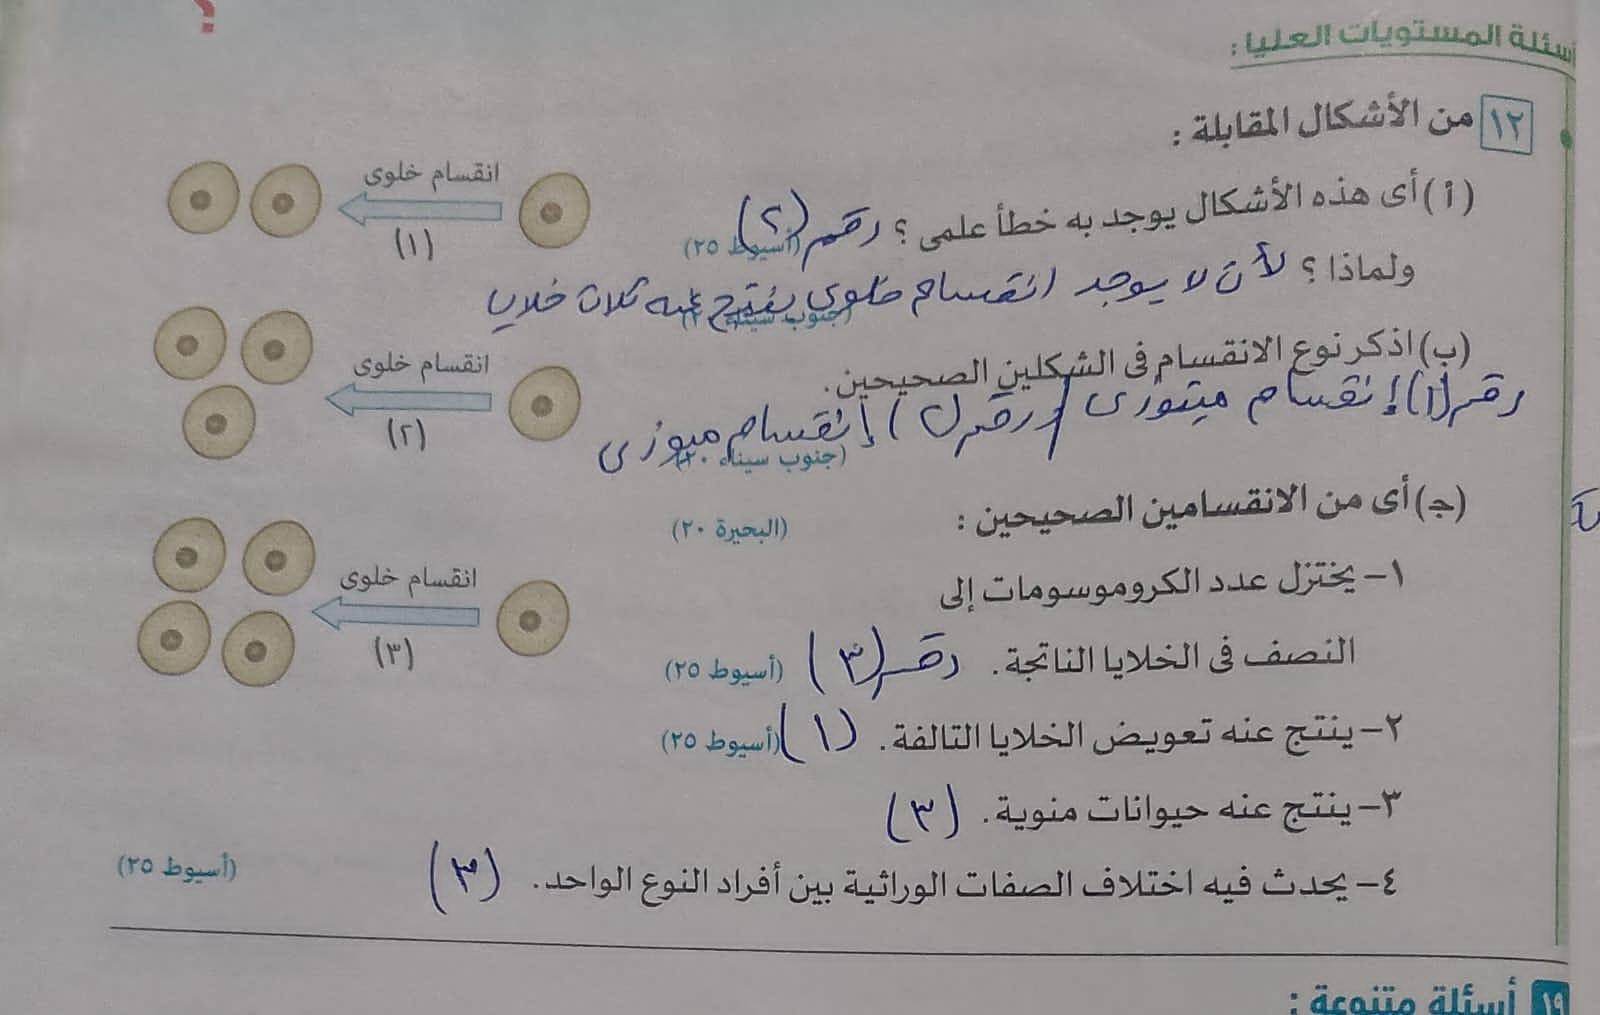 ؟
أسئلة المستويات العليا :
١٢ من الأشكال المقابلة :
(أ) أى هذه الأشكال يوجد به خطأ علمى ؟ رقم (٢) (أسيوط ٢٥)
ولماذا ؟ لأن لا يوجد انقسام خلوى ينتج عنه ثلاث خلايا
(جنوب سيناء ٢٠)
(ب) اذكر نوع الانقسام فى الشكلين الصحيحين.
رقم (١) إنقسام ميتوزى / رقم ( ) إنقسام ميوزى
(جنوب سيناء ٢٠)
(ج) أى من الانقسامين الصحيحين : (البحيرة ٢٠)
١- يختزل عدد الكروموسومات إلى
النصف فى الخلايا الناتجة. رقم (٣) (أسيوط ٢٥)
٢- ينتج عنه تعويض الخلايا التالفة. (١) (أسيوط ٢٥)
٣- ينتج عنه حيوانات منوية. (٣)
٤- يحدث فيه اختلاف الصفات الوراثية بين أفراد النوع الواحد. (٣) (أسيوط ٢٥)
انقسام خلوى
(١)
انقسام خلوى
(٢)
انقسام خلوى
(٣)
١٩ أسئلة متنوعة :